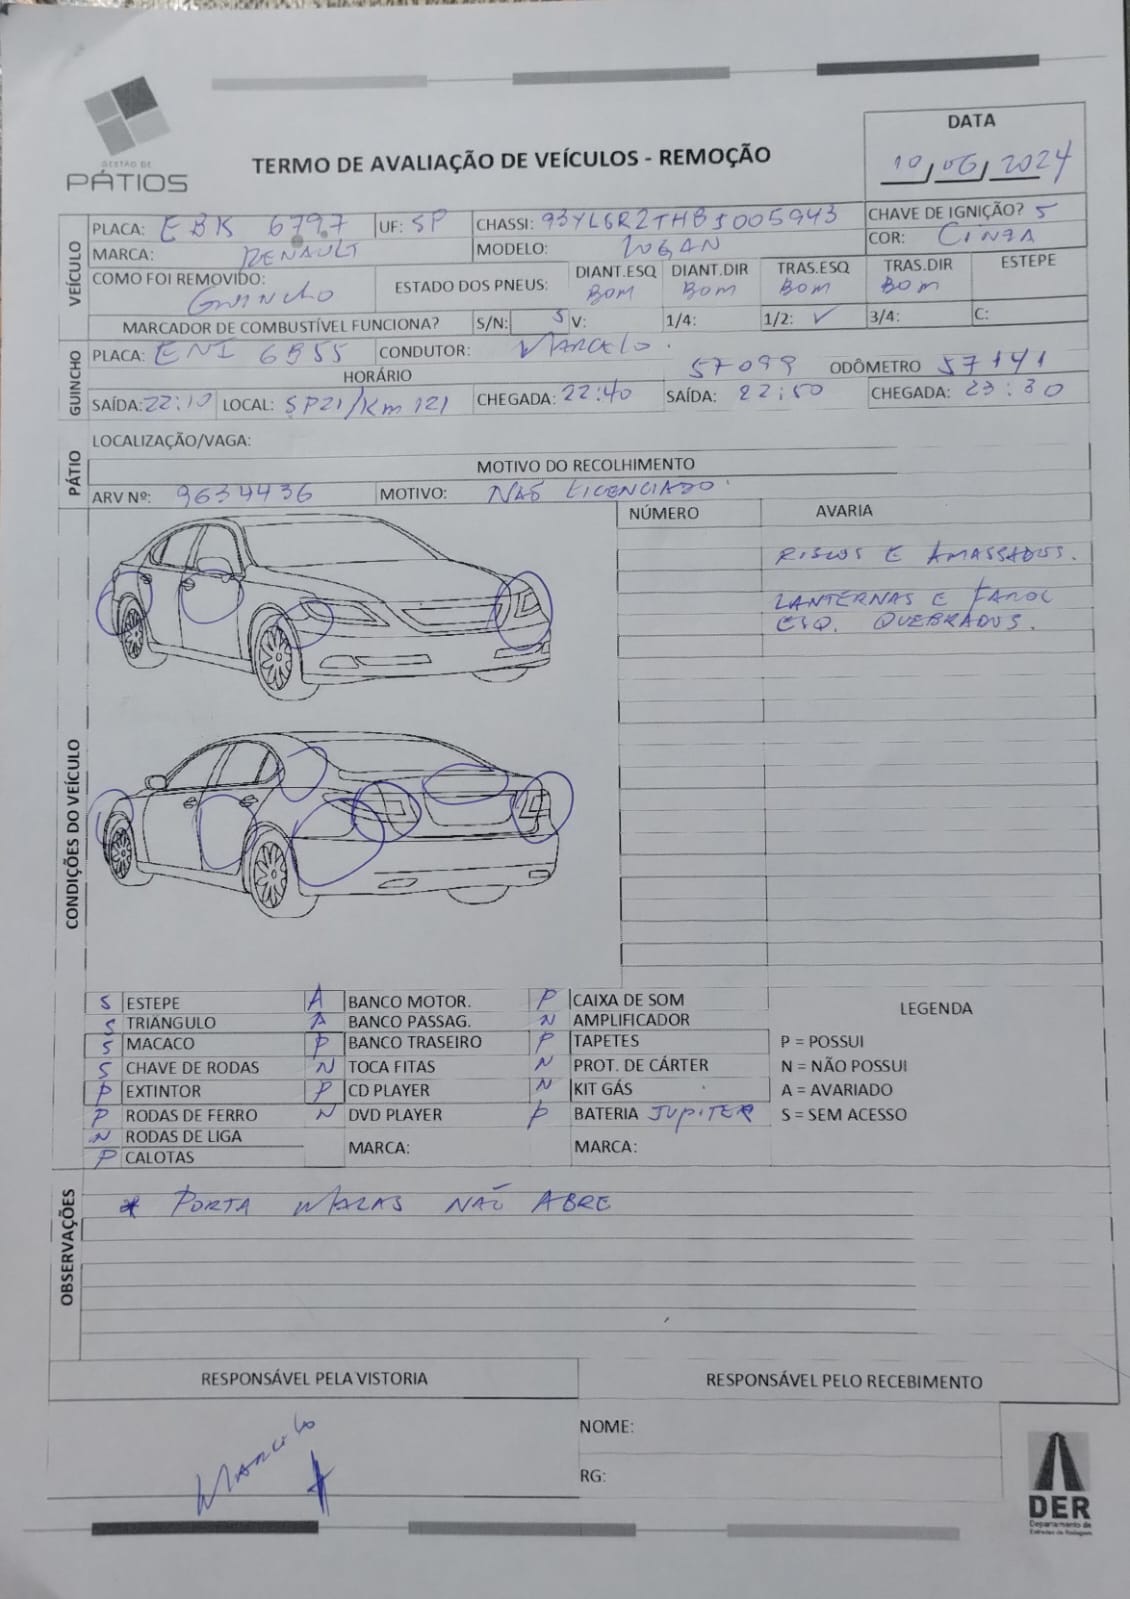 GESTÃO DE
PÁTIOS
TERMO DE AVALIAÇÃO DE VEÍCULOS - REMOÇÃO
DATA
10/06/2024
VEÍCULO
PLACA: EBK 6797 UF: SP CHASSI: 93YLSR2THBJ005943 CHAVE DE IGNIÇÃO? S
MARCA: RENAULT MODELO: LOGAN COR: CINZA
COMO FOI REMOVIDO: GUINCHO ESTADO DOS PNEUS: DIANT.ESQ BOM DIANT.DIR BOM TRAS.ESQ BOM TRAS.DIR BOM ESTEPE
MARCADOR DE COMBUSTÍVEL FUNCIONA? S/N: S V: 1/4: 1/2: ✓ 3/4: C:
GUINCHO
PLACA: ENI 6855 CONDUTOR: MARCELO.
HORÁRIO 57099 ODÔMETRO 57141
SAÍDA: 22:10 LOCAL: SP21/Km 121 CHEGADA: 22:40 SAÍDA: 22:50 CHEGADA: 23:30
PÁTIO
LOCALIZAÇÃO/VAGA:
MOTIVO DO RECOLHIMENTO
ARV Nº: 9634436 MOTIVO: NÃO LICENCIADO.
CONDIÇÕES DO VEÍCULO
NÚMERO AVARIA
RISCOS E AMASSADOS.
LANTERNAS E FAROL
ESQ. QUEBRADOS.
S ESTEPE A BANCO MOTOR. P CAIXA DE SOM LEGENDA
S TRIÂNGULO A BANCO PASSAG. N AMPLIFICADOR
S MACACO P BANCO TRASEIRO P TAPETES P = POSSUI
S CHAVE DE RODAS N TOCA FITAS N PROT. DE CÁRTER N = NÃO POSSUI
P EXTINTOR P CD PLAYER N KIT GÁS A = AVARIADO
P RODAS DE FERRO N DVD PLAYER P BATERIA JUPITER S = SEM ACESSO
N RODAS DE LIGA
P CALOTAS MARCA: MARCA:
OBSERVAÇÕES
* PORTA MALAS NÃO ABRE
RESPONSÁVEL PELA VISTORIA RESPONSÁVEL PELO RECEBIMENTO
MARCELO
NOME:
RG:
DER
Departamento de
Estradas de Rodagem